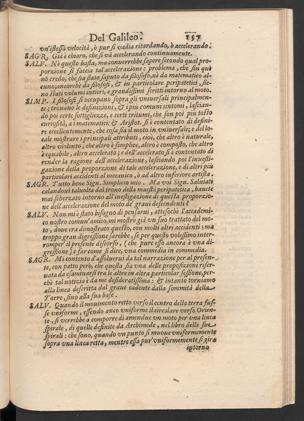 Del Galileo. 157
vn'istessa velocità, ò pur si vadia ritardando, ò accelerando.
SAGR. Già è chiaro, che si và accelerando continuamente.
SALV. Nè questo basta, ma conuerrebbe sapere secondo qual pro-
porzione si faccia tal accelerazione: problema, che sin quì
nò credo, che sia stato saputo da filosofo, nè da matematico al-
cuno; ancorchè da filosofi, & in particolare peripatetici, sie-
no stati volumi intieri, e grandissimi scritti intorno al moto.
SIMP. I filosofi si occupano sopra gli vniuersali principalmen-
te; trouano le definizioni, & i più comuni sintomi, lascian-
do poi certe sottigliezze, e certi tritumi, che son poi più tosto
curiosità, a i matematici: & Aristot. si è contentato di definir
eccellentemente, che cosa sia il moto in vniuersale; e del lo-
cale mostrare i principali attributi, cioè, che altro è naturale,
altro violento, che altro è semplice, altro è composto, che altro
è equabile, altro accelerato: e dell'accelerato si è contentato di
render la ragione dell'accelerazione, lasciando poi l'inuesti-
gazione della proporzione di tale accelerazione, e di altri più
particolari accidenti al mecanico, ò ad altro inferiore artista.
SAGR. Tutto bene Sign. Simplicio mio. Ma voi Sign. Saluiati
calandoui talvolta dal trono della maestà peripatetica, haueste
mai scherzato intorno all'inuestigazione di questa proporzio-
ne dell'accelerazione del moto de' graui descendenti?
SALV. Non mi è stato bisogno di pensarui, attesochè l'accademi-
co nostro comun'amico, mi mostrò già vn suo trattato del mo-
to, doue era dimostrato questo, con molti altri accidenti; ma
troppo gran digressione sarebbe, se per questo volessimo inter-
romper il presente discorso, (che pure esso ancora è vna di-
gressione) e far come si dice, vna commedia in commedia.
SAGR. Mi contento d'assoluerui da tal narrazione per al presen-
te, con patto però, che questa sia vna delle proposizioni riser-
uata da esaminarsi tra le altre in altra particolar sessione, perchè
tal notizia è da me desideratissima: & intanto torniamo
alla linea descritta dal graue cadente dalla sommità della
Torre, sino alla sua base.
SALV. Quando il mouimento retto verso il centro della terra fus-
se vniforme, essendo anco vniforme il circolare verso Orien-
te, si verrebbe a comporre di amendue vn moto per vna linea
spirale, di quelle definite da Archimede, nel libro delle sue
spirali: che sono, quando vn punto si muoue vniformemente
sopra vna linea retta, mentre essa pur vniformemente si gira
intorno